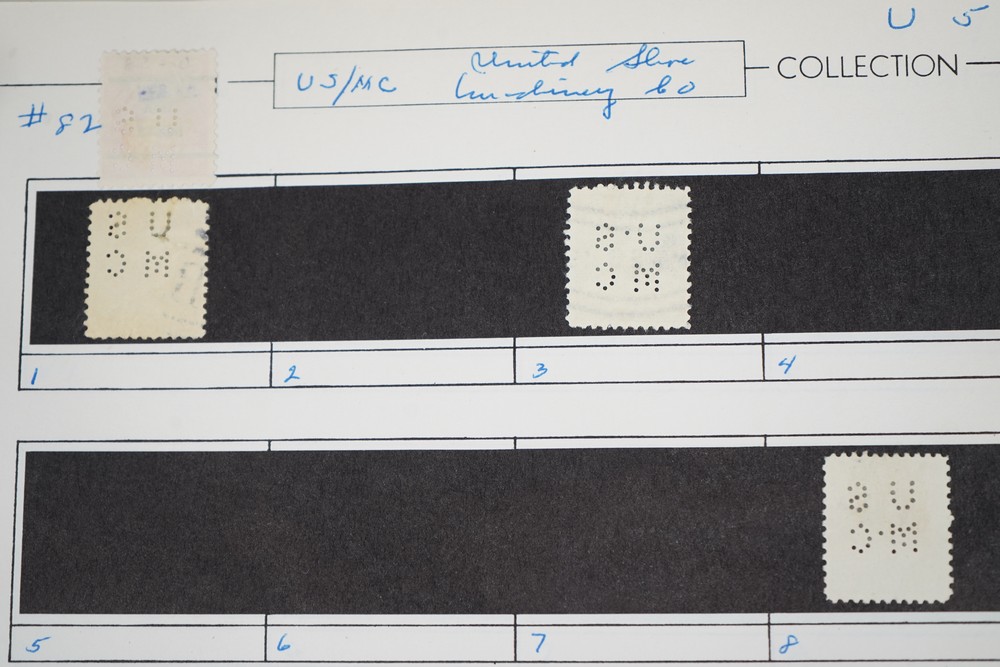 U S
US/MC United Shoe
Co
COLLECTION
#82
S U
S U
C M
S U
C M
1 2 3 4
S U
C M
5 6 7 8